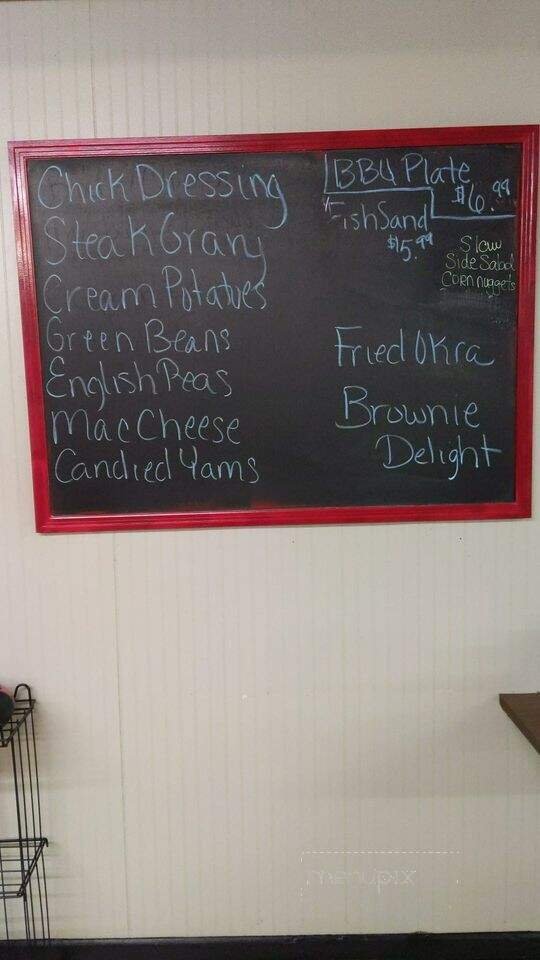 Chick Dressing
Steak Gravy
Cream Potatoes
Green Beans
English Peas
Mac Cheese
Candied Yams
BBQ Plate
$6.99
Fish Sand
$5.99
Slaw
Side Salad
Corn nuggets
Fried Okra
Brownie
Delight
menupix